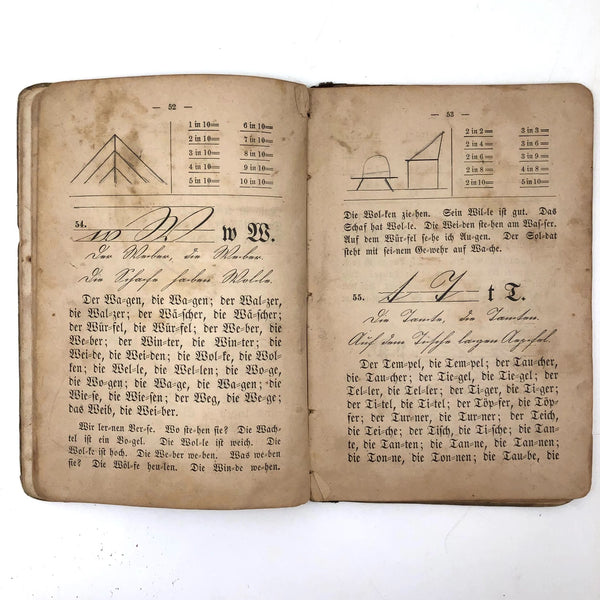 — 52 —
1 in 10= 6 in 10=
2 in 10= 7 in 10=
3 in 10= 8 in 10=
4 in 10= 9 in 10=
5 in 10= 10 in 10=
54. w W w W.
Der Weber, die Weber.
Die Schafe haben Wolle.
Der Wa=gen, die Wa=gen; der Wal=zer,
die Wal=zer; der Wä=scher, die Wä=scher;
der Wür=fel, die Wür=fel; der We=ber, die
We=ber; der Win=ter, die Win=ter; die
Wei=de, die Wei=den; die Wol=ke, die Wol=
ken; die Wel=le, die Wel=len; die Wo=ge,
die Wo=gen; die Wa=ge, die Wa=gen; die
Wie=se, die Wie=sen; der Weg, die We=ge;
das Weib, die Wei=ber.
Wir ler=nen Ver=se. Wo ste=hen sie? Die Wach=
tel ist ein Vo=gel. Die Wol=le ist weich. Die
Wol=ke ist hoch. Die We=ber we=ben. Was we=ben
sie? Die Wöl=fe heu=len. Die Win=de we=hen.
— 53 —
2 in 2= 3 in 3=
2 in 4= 3 in 6=
2 in 6= 3 in 9=
2 in 8= 4 in 4=
2 in 10= 5 in 5=
Die Wol=ken zie=hen. Sein Wil=le ist gut. Das
Schaf hat Wol=le. Die Wei=den ste=hen am Was=ser.
Auf dem Wür=fel se=he ich Au=gen. Der Sol=dat
steht mit sei=nem Ge=wehr auf Wa=che.
55. t T t T.
Die Tante, die Tanten.
Auf dem Tische lagen Aepfel.
Der Tem=pel, die Tem=pel; der Tau=cher,
die Tau=cher; der Tie=gel, die Tie=gel; der
Tel=ler, die Tel=ler; der Ti=ger, die Ti=ger;
der Ti=tel, die Ti=tel; der Töp=fer, die Töp=
fer; der Tur=ner, die Tur=ner; der Teich,
die Tei=che; der Tisch, die Ti=sche; die Tan=
te, die Tan=ten; die Tan=ne, die Tan=nen;
die Ton=ne, die Ton=nen; die Tau=be, die